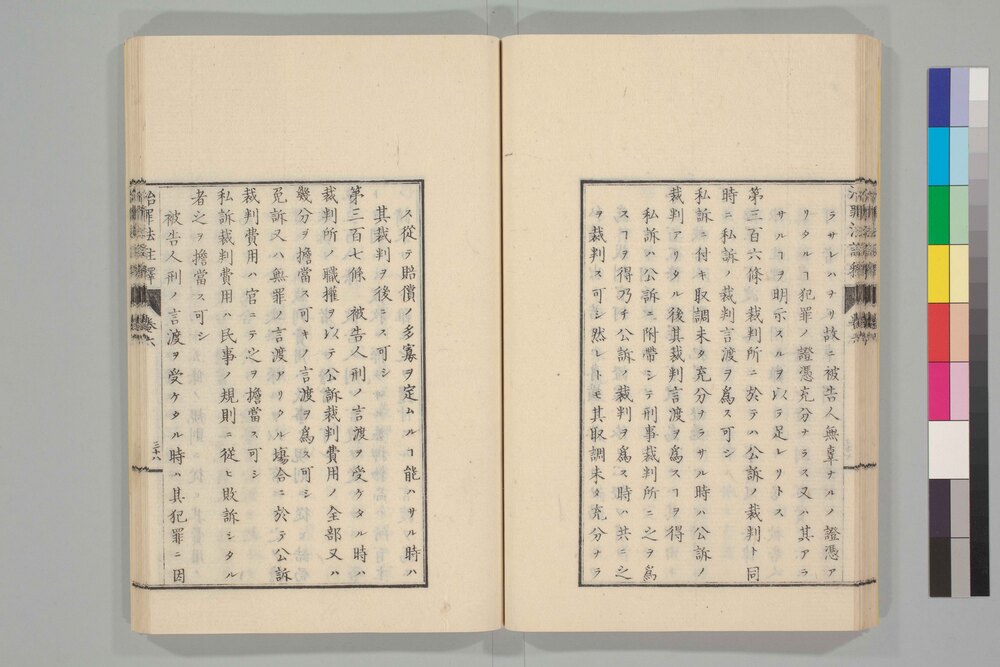 ラサレハナリ故ニ被告人無辜ナルノ證憑ア
リタルヿ犯罪ノ證憑充分ナラス又ハ其アラ
サルヿヲ明示スルヲ以テ足レリトス
第三百六條 裁判所ニ於テハ公訴ノ裁判ト同
時ニ私訴ノ裁判言渡ヲ爲ス可シ
私訴ニ付キ取調未タ充分ナラサル時ハ公訴ノ
裁判アリタル後其裁判言渡ヲ爲スヿヲ得
私訴ハ公訴ニ附帶シテ刑事裁判所ニ之ヲ爲
スヿヲ得乃チ公訴ノ裁判ヲ爲ス時ハ共ニ之
ヲ裁判ス可シ然レトモ其取調未タ充分ナラ
ス從テ賠償ノ多寡ヲ定ムルヿ能ハサル時ハ
其裁判ヲ後ニス可シ
第三百七條 被告人刑ノ言渡ヲ受ケタル時ハ
裁判所ノ職權ヲ以テ公訴裁判費用ノ全部又ハ
幾分ヲ擔當ス可キノ言渡ヲ爲ス可シ
免訴又ハ無罪ノ言渡アリタル塲合ニ於テ公訴
裁判費用ハ官ニテ之ヲ擔當ス可シ
私訴裁判費用ハ民事ノ規則ニ從ヒ敗訴シタル
者之ヲ擔當ス可シ
被告人刑ノ言渡ヲ受ケタル時ハ其犯罪ニ因
治罪法註釋 卷六
三十八